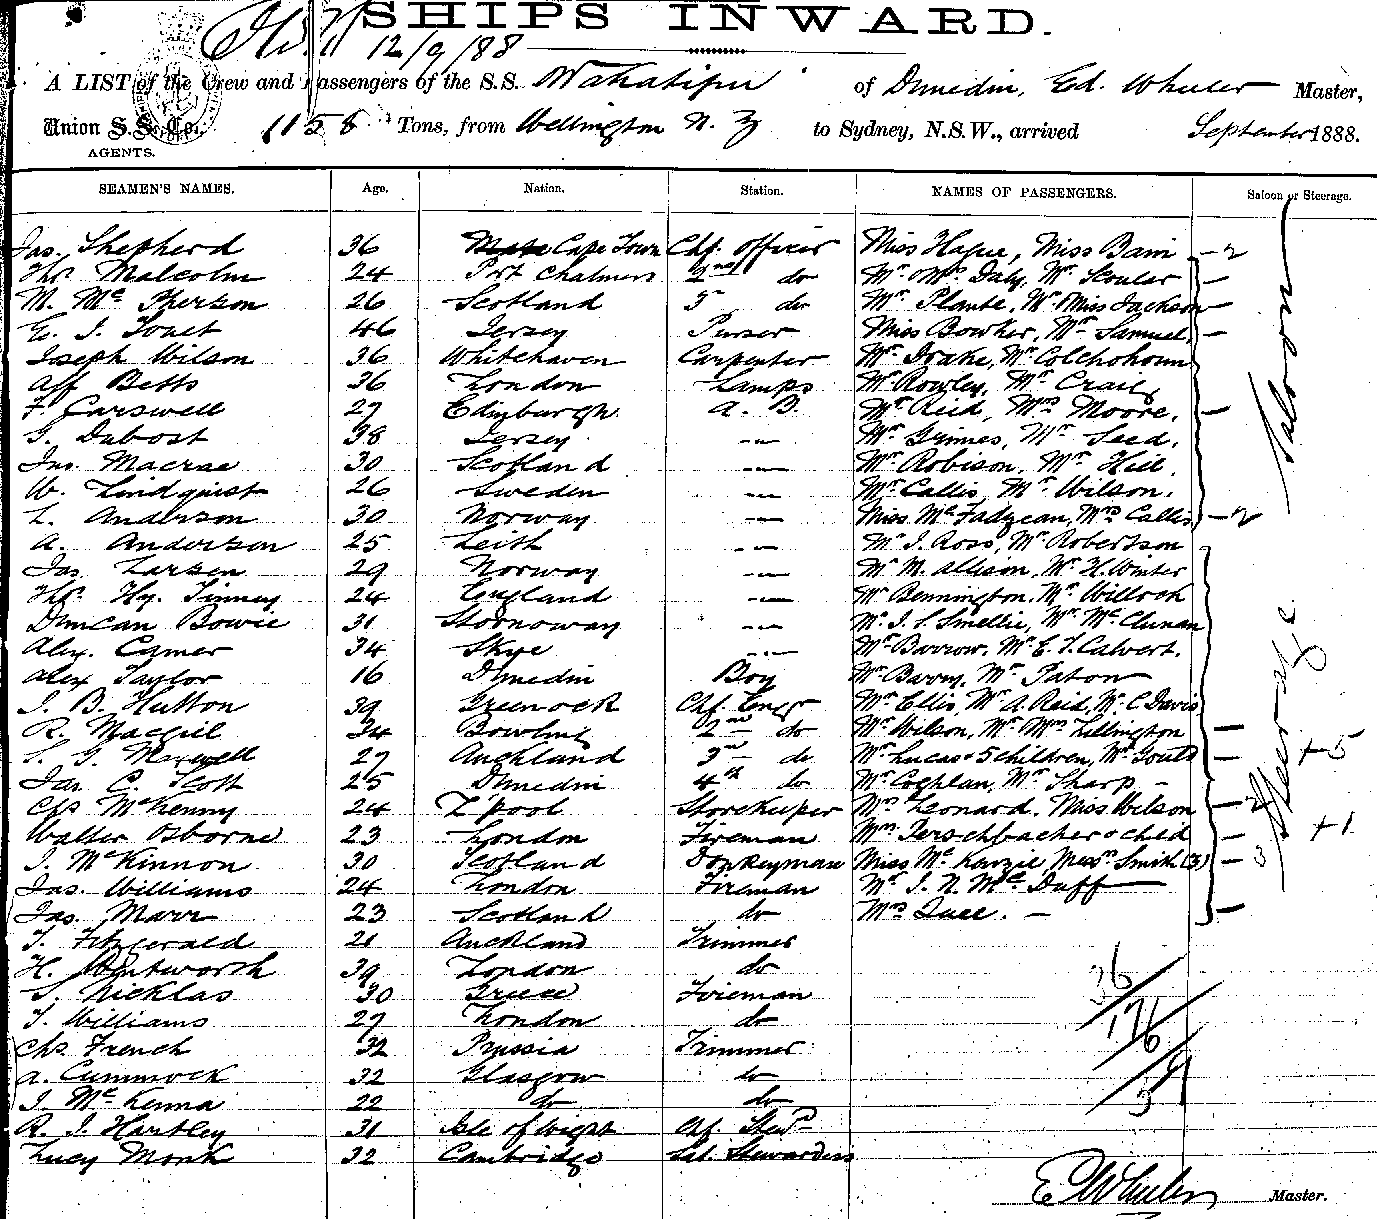 SHIPS INWARD.
12/9/88
A LIST of the Crew and Passengers of the S.S. Wakatipu of Dunedin, Ed. Wheeler Master,
Union S.S. Co., 1158 Tons, from Wellington N.Z to Sydney, N.S.W., arrived September 1888.
AGENTS.
SEAMEN'S NAMES. Age. Nation. Station. NAMES OF PASSENGERS. Saloon or Steerage.
Jas. Shepherd 36 Cape Town Chf. Officer Miss Hague, Miss Bain - 2
Thos. Malcolm 24 Port Chalmers 2nd do Mr. Mrs. Daly, Mr. Scouler -
M. McPherson 26 Scotland 3 do Mr. Plante, Mr. Miss Jackson -
E. J. 46 Jersey Purser Miss Bowker, Mr. Samuel -
Joseph Wilson 36 Whitehaven Carpenter Mr. Drake, Mr. Colchohoun
Alf Betts 36 London Lamps Mr. Rowley, Mr. Craig
F. Carswell 27 Edinburgh A. B. Mr. Reid, Mrs Moore. -
G. Dubost 38 Jersey -"- Mr. Grimes, Mr. Seed.
Jas. Macrae 30 Scotland -"- Mr. Robison, Mr. Hill.
W. Lindquist 26 Sweden -"- Mr. Callis, Mr. Wilson.
L. Anderson 30 Norway -"- Miss McFadyean, Mrs Callis - 2
Saloon
A. Anderson 25 Leith -"- Mr. J. Ross, Mr. Robertson
Jas Larsen 29 Norway -"- Mr. M. Allison, Mr. H. Winter
Hy. Tinney 24 England -"- Mr. Bennington, Mr. Willock
Duncan Bowie 31 Stornoway -"- Mr. J. S. Smellie, Mr. McClunan
Alex. Cymer 34 Skye -"- Mr. Barrow, Mr. E. J. Calvert.
Alex Taylor 16 Dunedin Boy Mr. Barry, Mr. Paton
J. B. Hutton 39 Greenock Chf. Engr Mr. Ellis, Mr. A. Reid, Mr. C Davis
R. Macgil 34 Bowling 2nd do Mr. Wilson, Mr. Mrs. Lillington -
S. G. Maxwell 27 Auckland 3rd do Mr. Lucas & 5 children, Mr. Gould - + 5
Jas. C. Scott 25 Dunedin 4th do Mr. Coghlan, Mr. Sharp -
Chs McKenny 24 L'pool Storekeeper Mrs Leonard, Miss Wilson - 2
Walter Osborne 23 London Fireman Mrs. Terschbacher & child - +1
J. McKinnon 30 Scotland Donkeyman Miss McKenzie, Messrs Smith (3) - 3
Jas. Williams 24 London Fireman Mr. J. N. McDuff
Jas. Marr 23 Scotland do Mrs Quee. -
Steerage
T. Fitzgerald 21 Auckland Trimmer
H. Wentworth 39 London do
S. Nicklas 30 Greece Fireman
T. Williams 27 London do
Chs. French 32 Prussia Trimmer
A. Cummock 32 Glasgow do
J. McKenna 22 do do
R. J. Hartley 31 Isle of Wight Chf. Stewd
Lucy Monk 32 Cambridge Sal. Stewardess
36/
176/
59
E Wheeler Master.